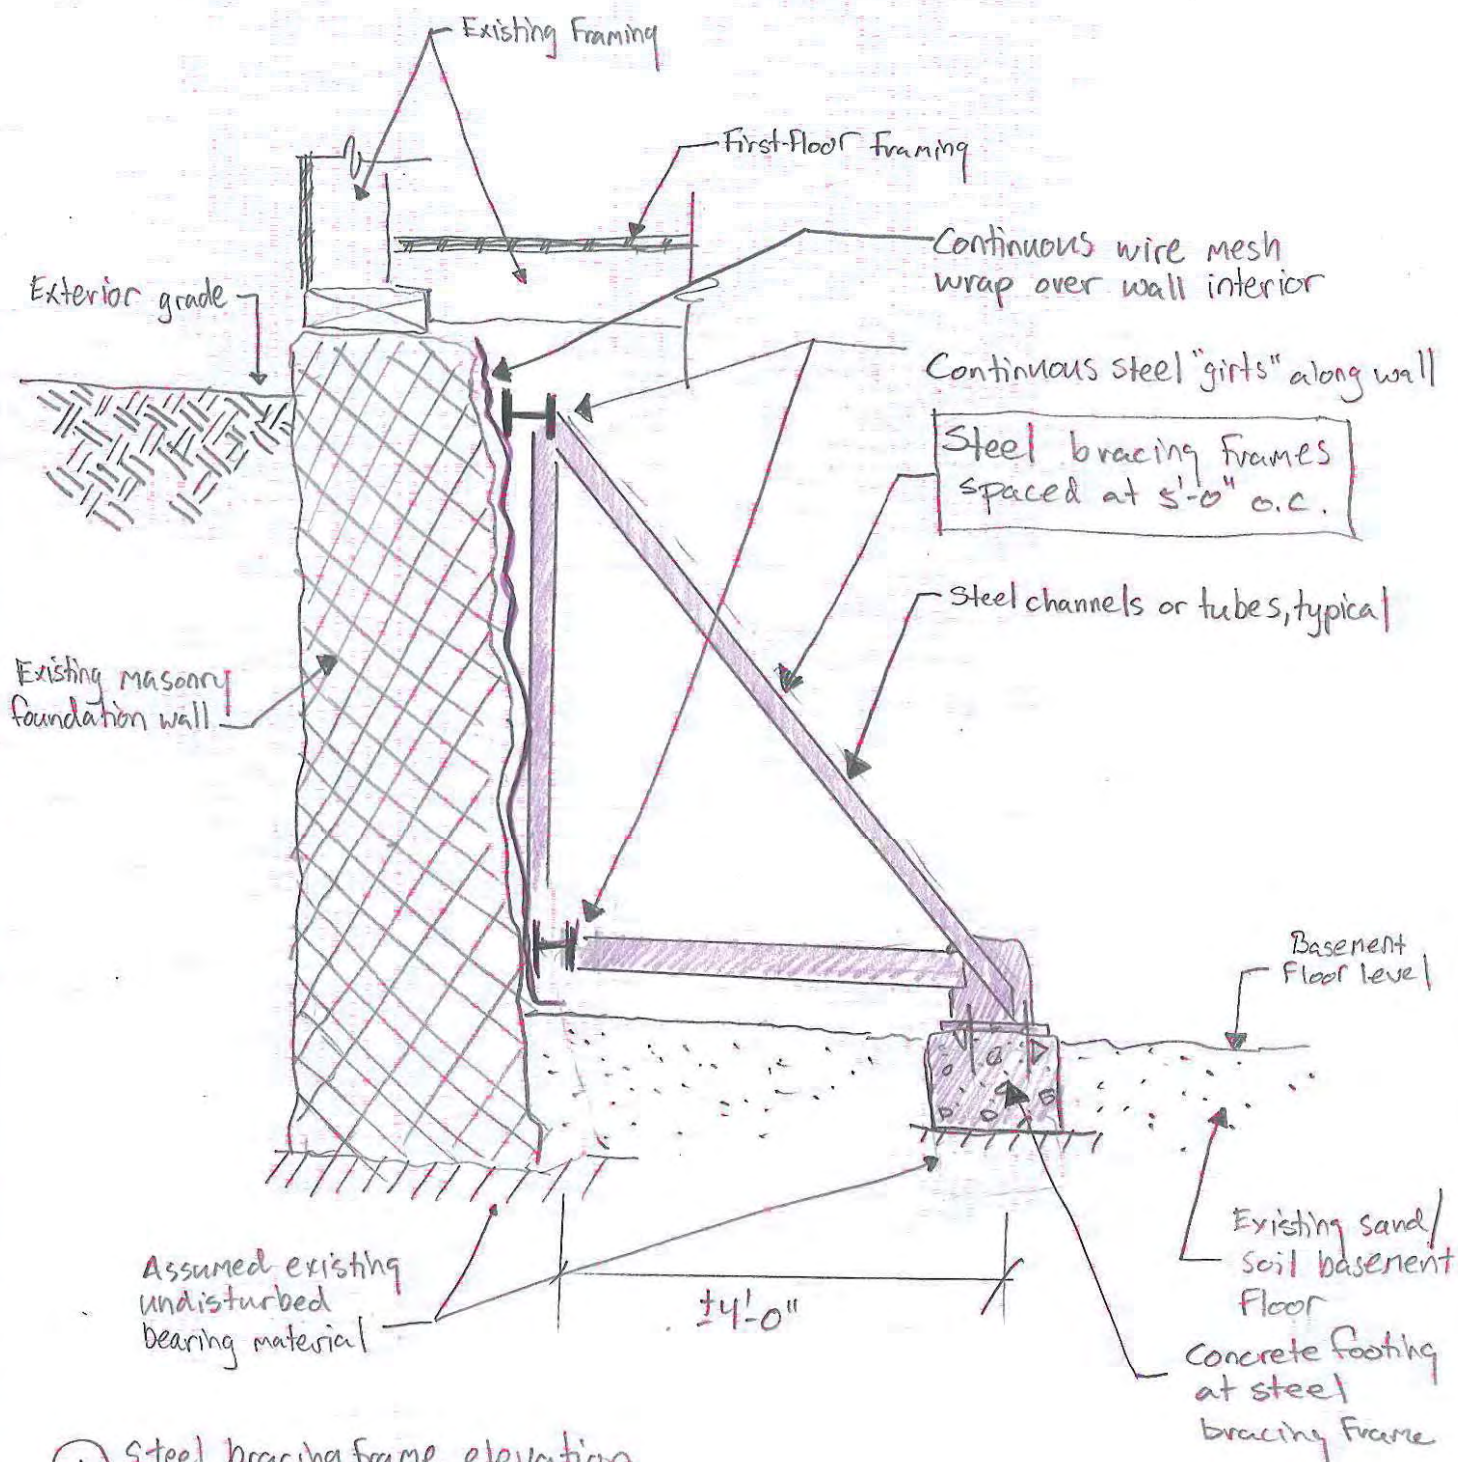 Existing Framing
First-Floor Framing
Continuous wire mesh
wrap over wall interior
Exterior grade
Continuous steel "girts" along wall
Steel bracing Frames
spaced at 5'-0" o.c.
Steel channels or tubes, typical
Existing masonry
foundation wall
Basement
Floor level
Existing sand/
soil basement
Floor
Assumed existing
undisturbed
bearing material
±4'-0"
Concrete footing
at steel
bracing Frame
Steel bracing frame elevation